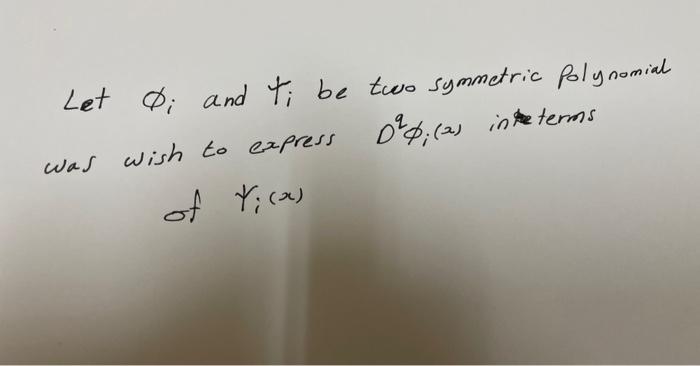 Let Φi and Ψi be two symmetric polynomial
was wish to express D^qΦi(x) in terms
of Ψi(x)